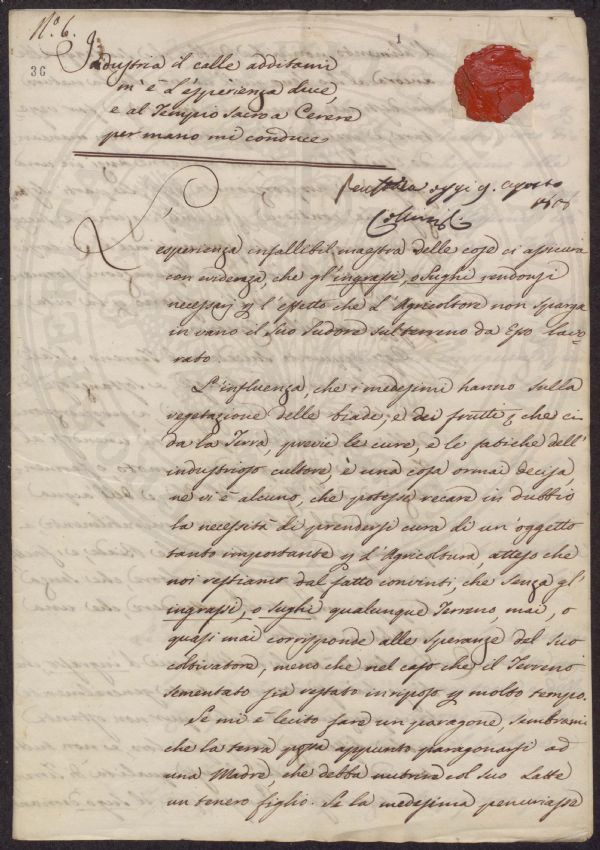 N.º 6.
1
36
Industria il calle additami
m'è l'esperienza duce,
e al Tempio sacro a Cerere
per mano mi conduce
oggi 9. agosto
L'esperienza infallibil maestra delle cose ci assicura
con evidenza, che gl'ingrassi, o Sughi rendonsi
necessarj p l'effetto che l'Agricoltore non sparga
in vano il suo sudore sul terreno da Esso lavo-
rato
L'influenza, che i medesimi hanno sulla
vegetazione delle biade, e dei frutti, che ci
da la Terra, previe le cure, e le fatiche dell'
industrioso cultore, è una cosa ormai decisa,
ne vi è alcuno, che potesse recare in dubbio
la necessità di prendersi cura di un'oggetto
tanto importante p l'Agricoltura, atteso che
noi restiamo dal fatto convinti, che senza gl'
ingrassi, o Sughi qualunque Terreno, mai, o
quasi mai corrisponde alle speranze del suo
coltivatore, meno che nel caso che il Terreno
sementato sia restato in riposo p molto tempo.
Se mi è lecito fare un paragone, sembrami
che la terra possa appunto paragonarsi ad
una Madre, che debba nutrire col suo Latte
un tenero figlio. Se la medesima penuriasse